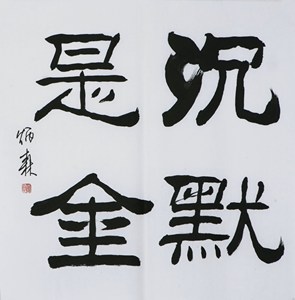 沉默
是金
炳森